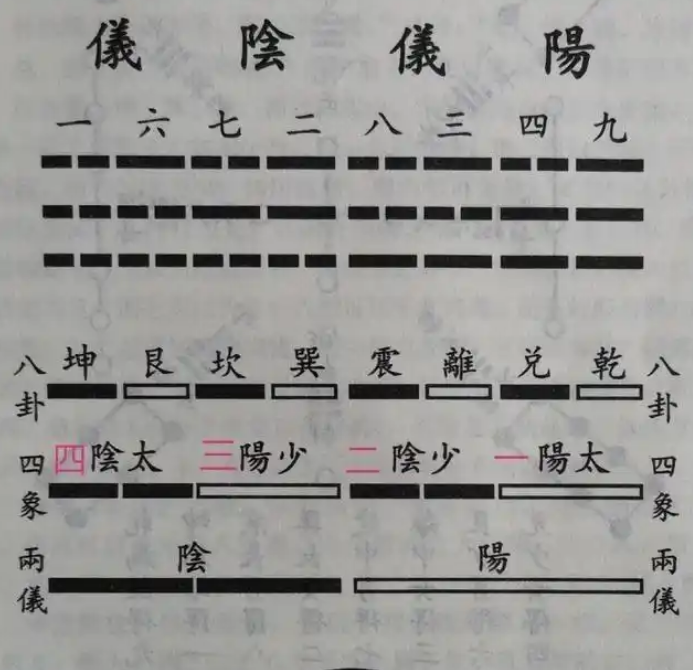 陽儀陰儀
九 四 三 八 二 七 六 一
八卦 乾 兌 離 震 巽 坎 艮 坤 八卦
四象 太陽一 少陰二 少陽三 太陰四 四象
兩儀 陽 陰 兩儀